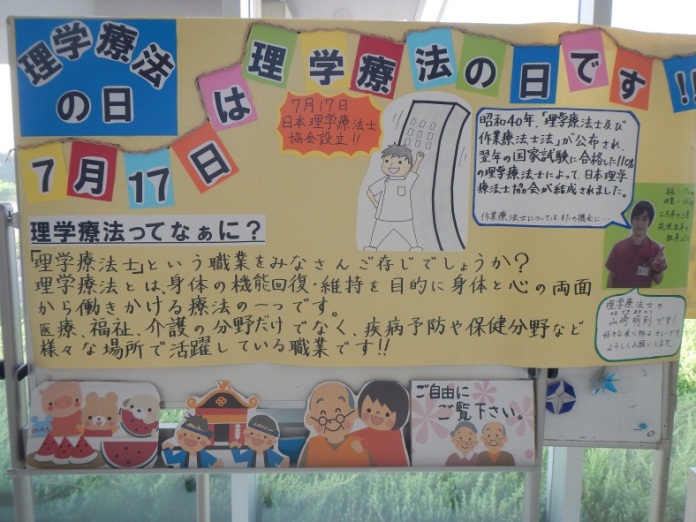 理学療法
の日
7月17日
は
理学療法の日です!!
7月17日
日本理学療法士
協会設立!!
昭和40年、「理学療法士及び
作業療法士法」が公布され、
翌年の国家試験に合格した110名
の理学療法士によって、日本理学
療法士協会が結成されました。
作業療法士については、またの機会に…
理学療法ってなぁに？
「理学療法士」という職業をみなさんご存じでしょうか？
理学療法とは、身体の機能回復・維持を目的に身体と心の両面
から働きかける療法の一つです。
医療、福祉、介護の分野だけでなく、疾病予防や保健分野など
様々な場所で活躍している職業です!!
理学療法士の
です!
よろしくお願いします。
ご自由に
ご覧下さい。